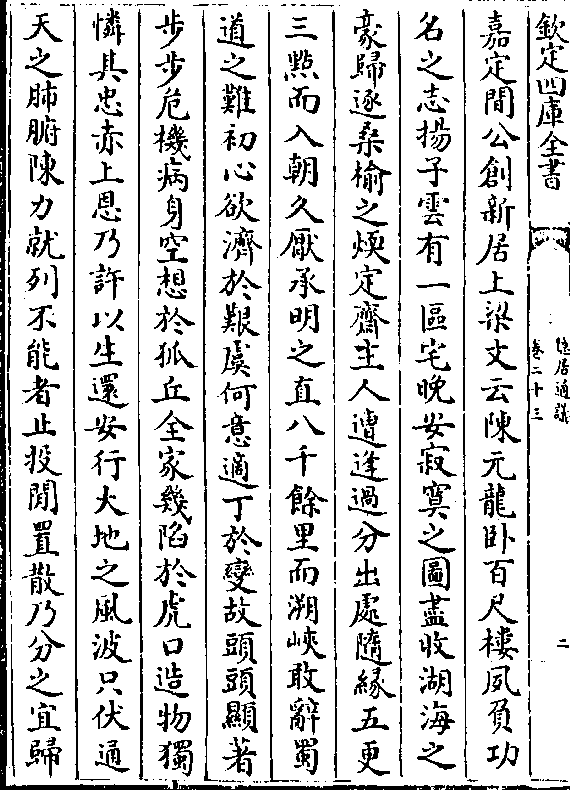 欽定四庫全書
隱居通議
卷二十三
二
嘉定間公創新居上梁文云陳元龍卧百尺樓夙負功
名之志揚子雲有一區宅晚安寂寞之圖盡收湖海之
豪歸逐桑榆之煖定齋主人遭逢過分出處隨緣五更
三點而入朝久厭承明之直八千餘里而溯峽敢辭蜀
道之難初心欲濟於艱虞何意適丁於變故頭頭顯著
步步危機病身空想於狐丘全家幾陷於虎口造物獨
憐其忠赤上恩乃許以生還安行大地之風波只伏通
天之肺腑陳力就列不能者止投閒置散乃分之宜歸